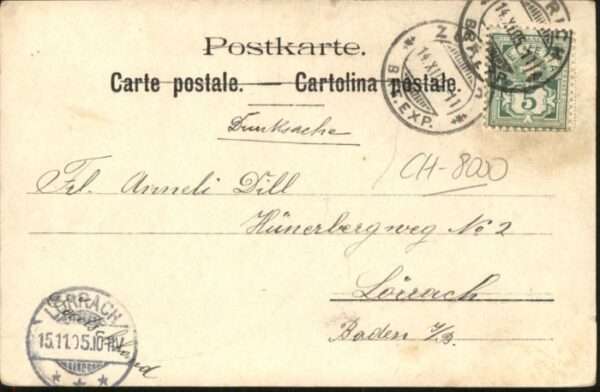 Postkarte.
Carte postale. — Cartolina postale.
Drucksache
CH-8000
Frl. Anneli Dill
Hünerbergweg No 2
Lörrach
Baden
5
BRF.EXP.
LÖRRACH
15.11.05.10-11V.